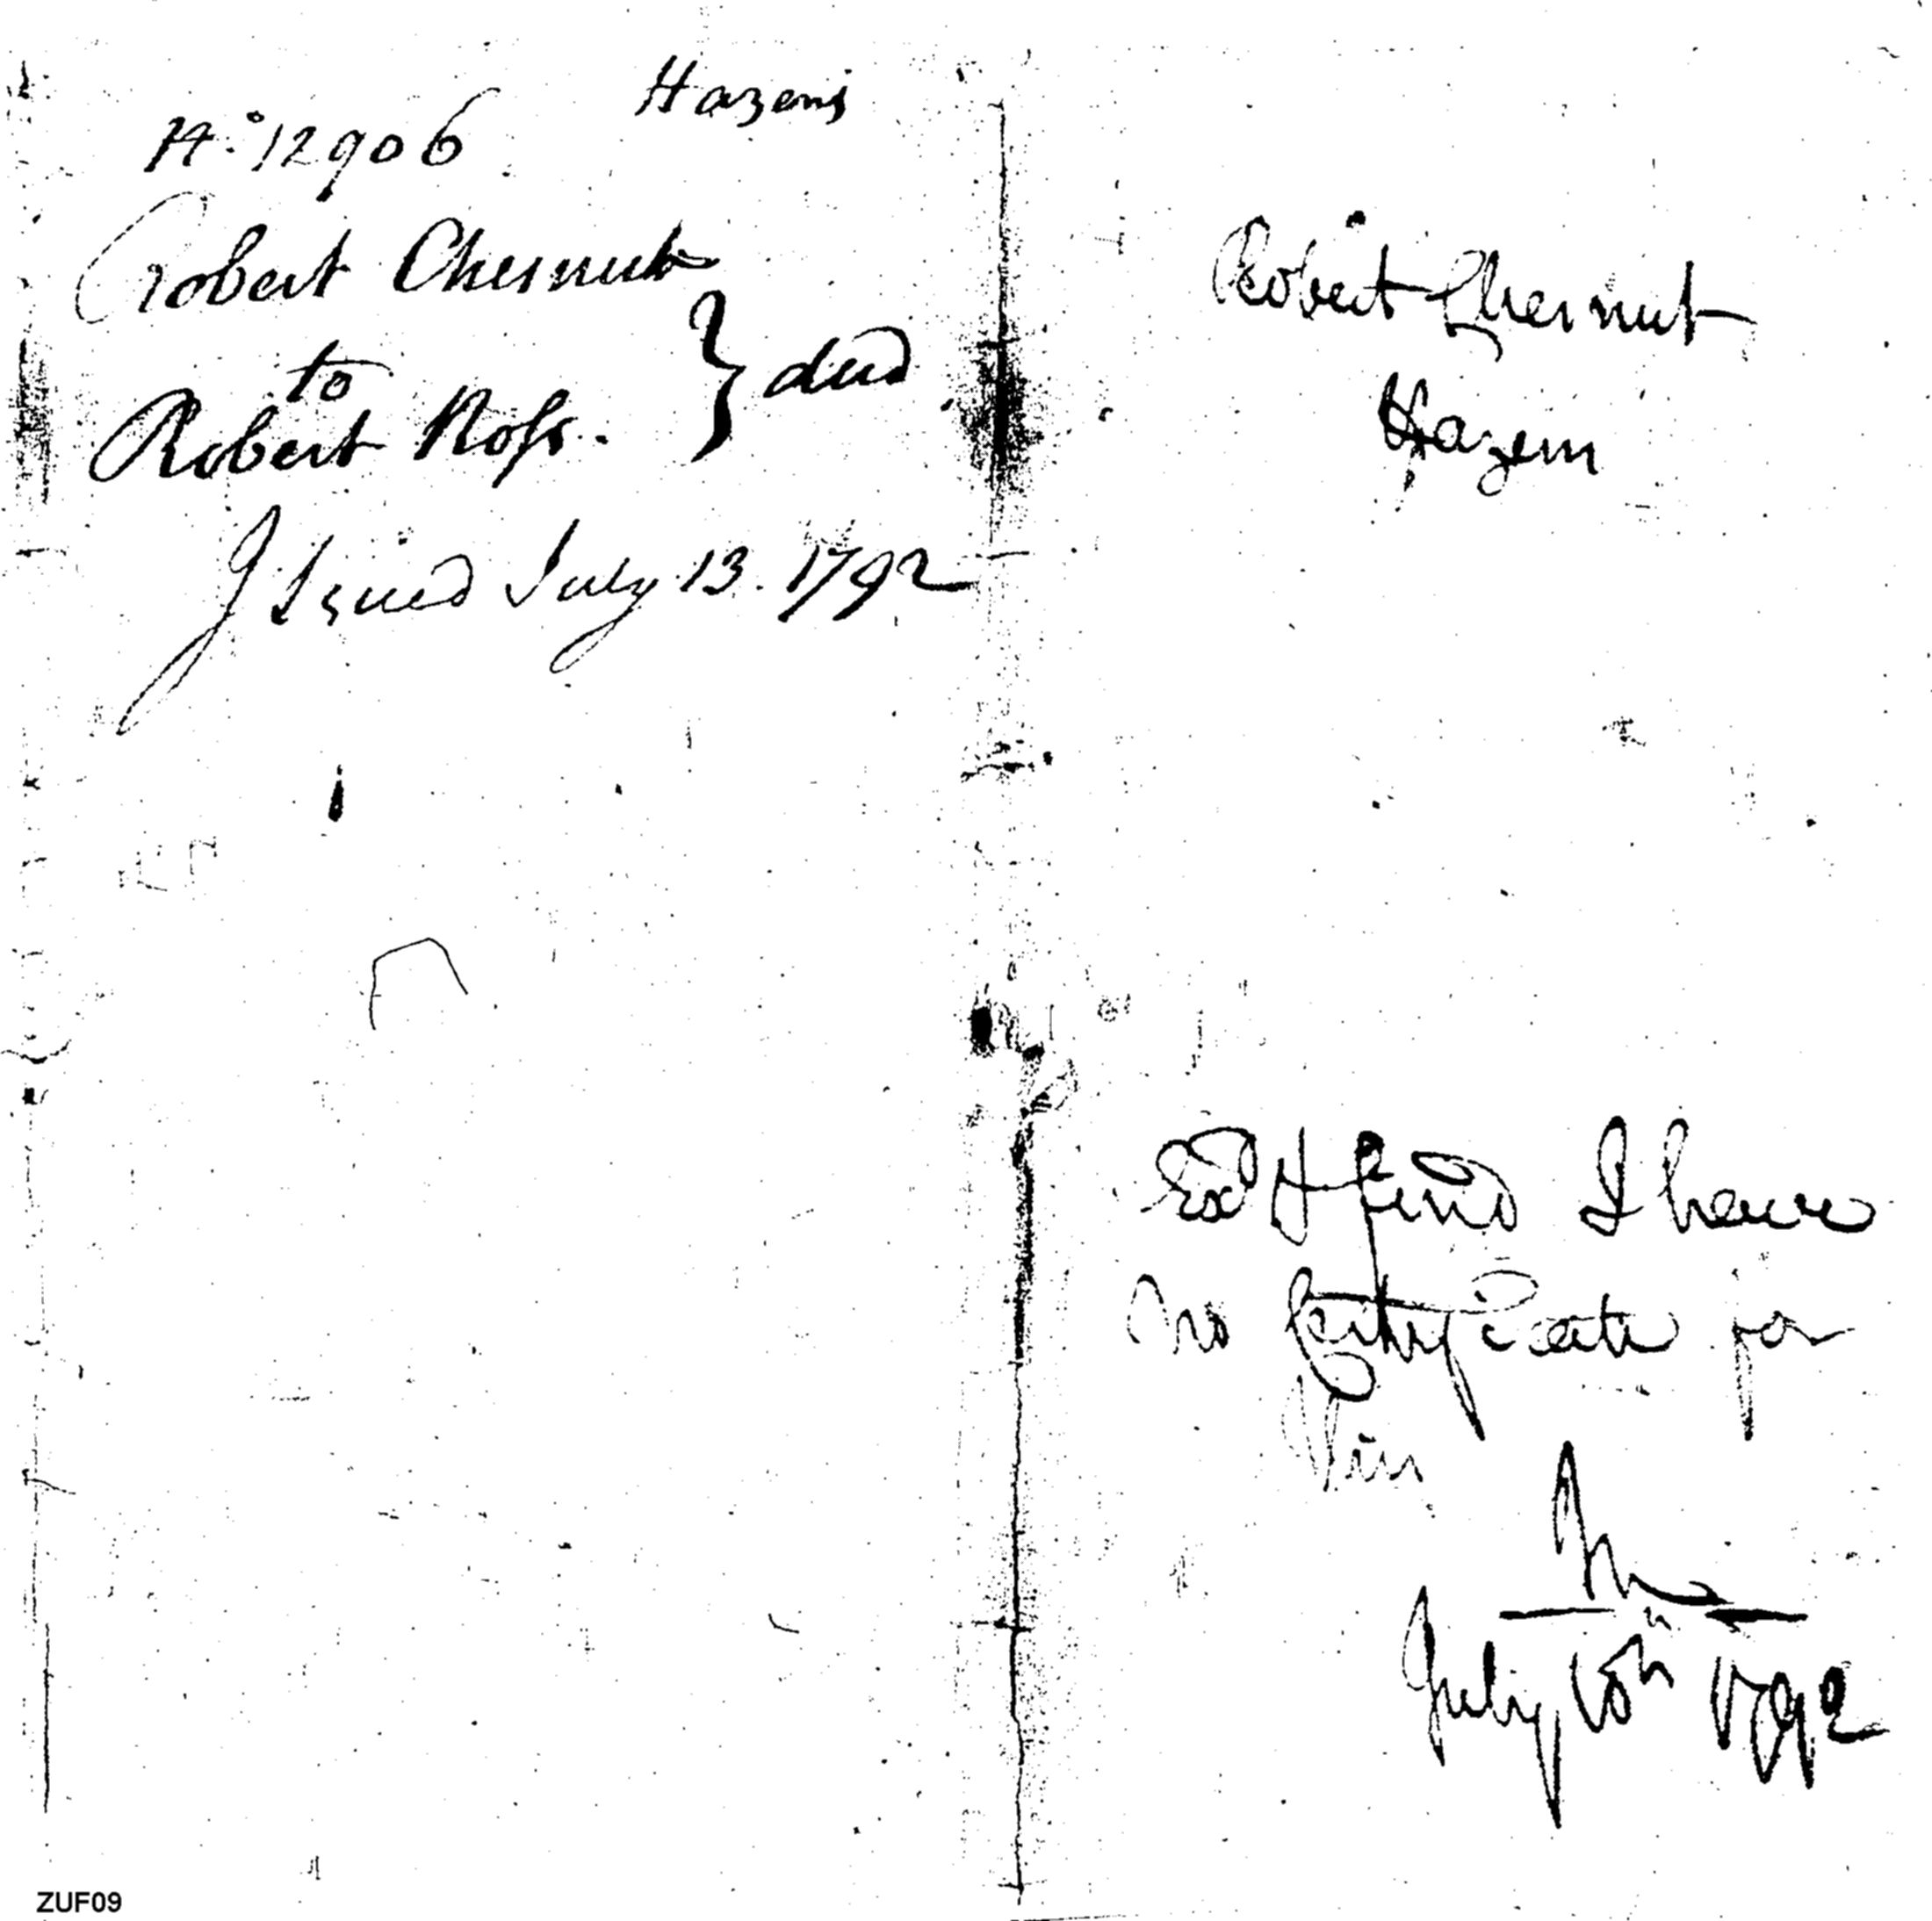 Hazens
No. 12906
Robert Chesnut
to } deed
Robert Ross.
Issued July 13. 1792
Robert Chesnut
Hazens
Exd & find I have
no Certificate for
him
July 10th 1792
ZUF09